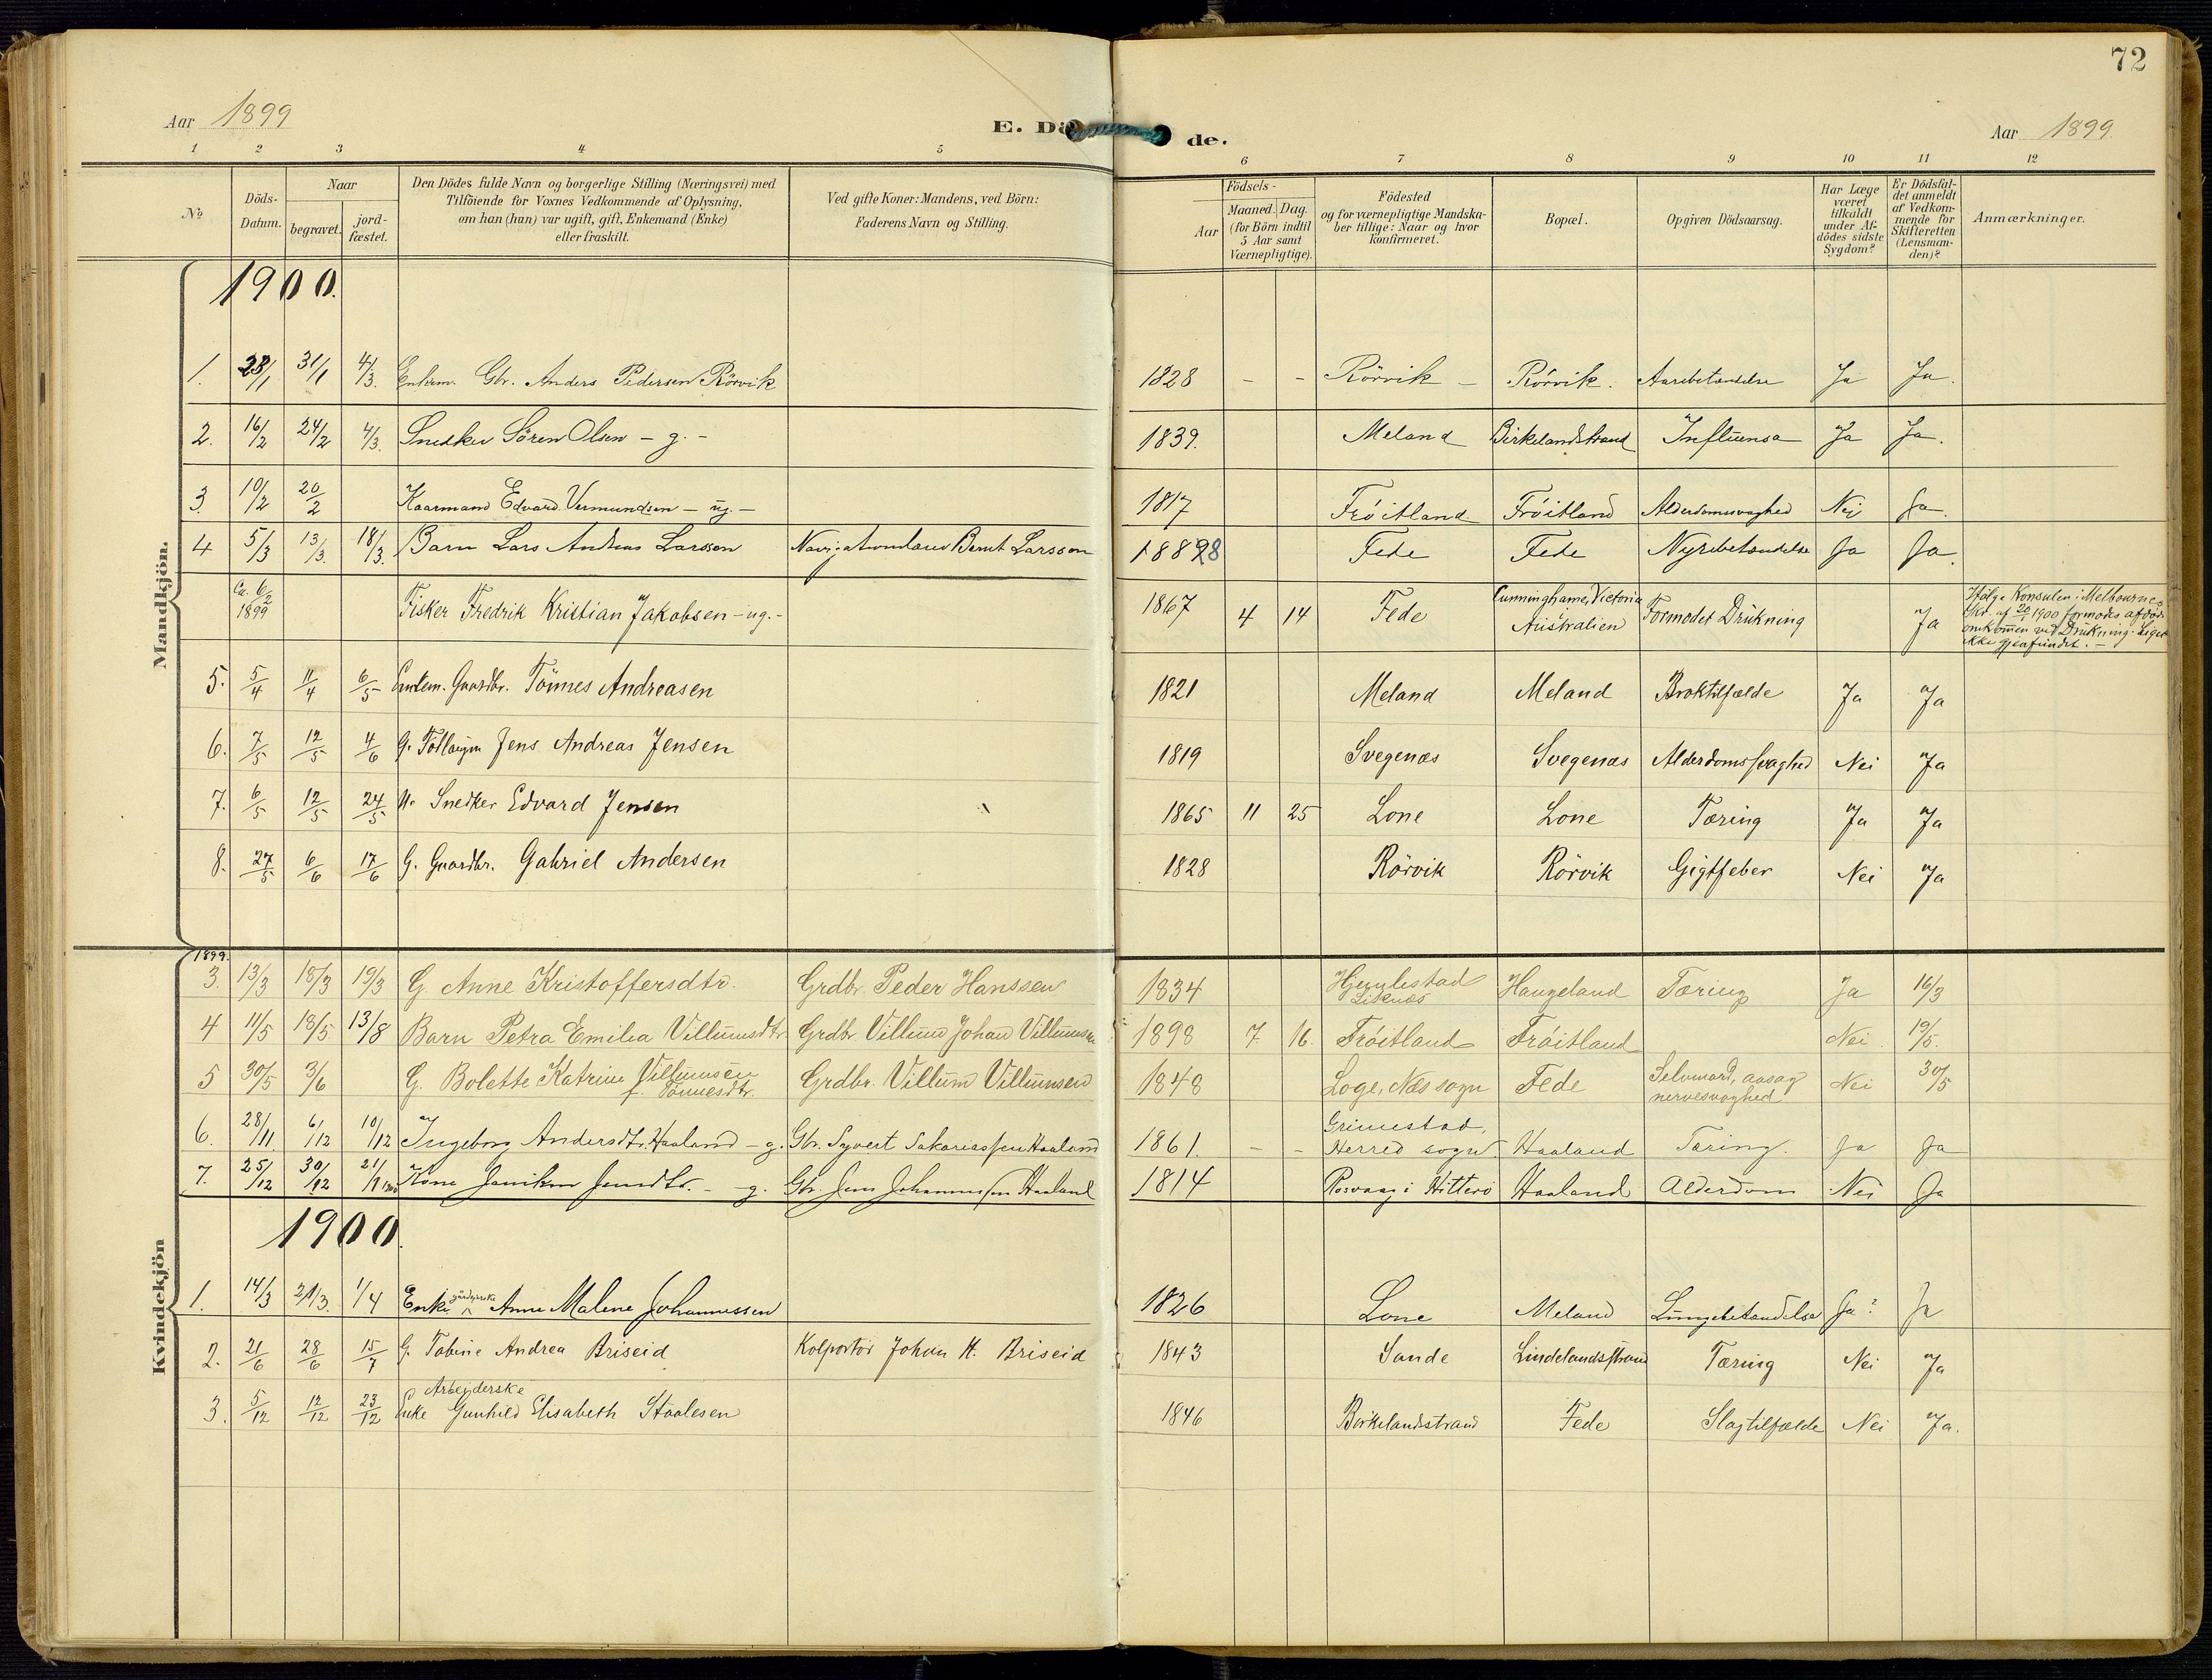 72
Aar 1899
E. Dö de.
Aar 1899.
1 2 3 4 5 6 7 8 9 10 11 12
No
Döds-Datum.
Naar
begravet.
jord-fæstet.
Den Dödes fulde Navn og borgerlige Stilling (Næringsvei) med
Tilföiende for Voxnes Vedkommende af Oplysning,
om han (hun) var ugift, gift, Enkemand (Enke)
eller fraskilt.
Ved gifte Koner: Mandens, ved Börn:
Faderens Navn og Stilling.
Födsels-
Aar
Maaned. Dag.
(for Börn indtil
5 Aar samt
Værnepligtige).
Födested
og for værnepligtige Mandska-
ber tillige: Naar og hvor
konfirmeret.
Bopæl.
Opgiven Dödsaarsag.
Har Læge
været
tilkaldt
under Af-
dödes sidste
Sygdom?
Er Dödsfal-
det anmeldt
af Vedkom-
mende for
Skifteretten
(Lensman-
den)?
Anmærkninger.
Mandkjön.
1900.
1. 23/1 31/1 4/3. Enkem. Gbr. Anders Pedersen Rörvik 1828 - - Rörvik - Rörvik. Ja Ja.
2. 16/2 24/2 4/3. Snedker Sören Olsen - g. - 1839. Meland Birkelandstrand Influensa Ja Ja.
3. 10/2 20/2 Kaarmand Edvard Vermundsen - ug. - 1817 Fröitland Fröitland Alderdomsvaghed Nei Ja.
4 5/3 13/3. 18/3. Barn Lars Andreas Larsson Navigationslærer Bernt Larsson Fede Fede Nyrebetændelse Ja Ja.
Ca. 6/2 1899 Fisker Fredrik Kristian Jakobsen - ug. - 1867 4 14 Fede Cunninghame, Victoria
Australien Formodet Drukning Ja Ifølge Konsulen i Melbournes
Skr. af 20/1 1900 formodes afdøde
omkommen ved Drukning. Liget
ikke gjenfundet. -
5. 5/4 11/4 6/5 Enkem. Gaardbr. Tönnes Andreasen 1821 Meland Meland Broktilfælde Ja Ja
6. 7/5 12/5 4/6 G. Jens Andreas Jensen 1819 Svegenæs Svegenæs Alderdomssvaghed Nei Ja
7. 6/5 12/5 24/5 U. Snedker Edvard Jensen 1865 11 25 Lone Lone Tæring Ja Ja
8. 27/5 6/6 17/6 G. Gaardbr. Gabriel Andersen 1828 Rörvik Rörvik Gigtfeber Nei Ja
Kvindekjön
1899.
3. 13/3 18/3 19/3 G. Anne Kristoffersdtr. Grdbr. Peder Hanssen 1834 Liknæs Haugeland Tæring Ja 16/3
4 11/5 18/5 13/8 Barn Petra Emilia Villumsdtr. Grdbr. Villum Johan Villumsen 1898 7 16. Fröitland Fröitland Nei. 19/5.
5 30/5 3/6 G. Bolette Katrine Villumsen
f. Tönnesdtr. Grdbr. Villum Villumsen 1848 Loge, Næs sogn Fede Selvmord, aarsag
nervesvaghed Nei 30/5
6. 28/11 6/12 10/12 Ingeborg Andersdtr. Haaland - g. Gbr. Syvert Sakariassen Haaland 1861. - - Grimestad,
Herred sogn. Haaland Tæring. Ja Ja
7. 25/12 30/12 21/1 1900 Kone Janiken Jensdtr. - g. Gbr. Jens Johannessen Haaland 1814 Rosvaag i Hitterö Haaland Alderdom Nei Ja
1900.
1. 14/3 21/3. 1/4 Enke Anne Malene Johannessen 1826 Lone Meland Lungebetændelse Ja? Ja
2. 21/6 28/6 15/7 G. Tobine Andrea Briseid Kolportör Johan H. Briseid 1843 Sande Lindelandsstrand Tæring Nei Ja
Arbeiderske
3. 5/12 12/12 23/12 Enke Gunhild Elisabeth Staalesen 1846 Birkelandsstrand Fede Slagtilfælde Nei Ja.